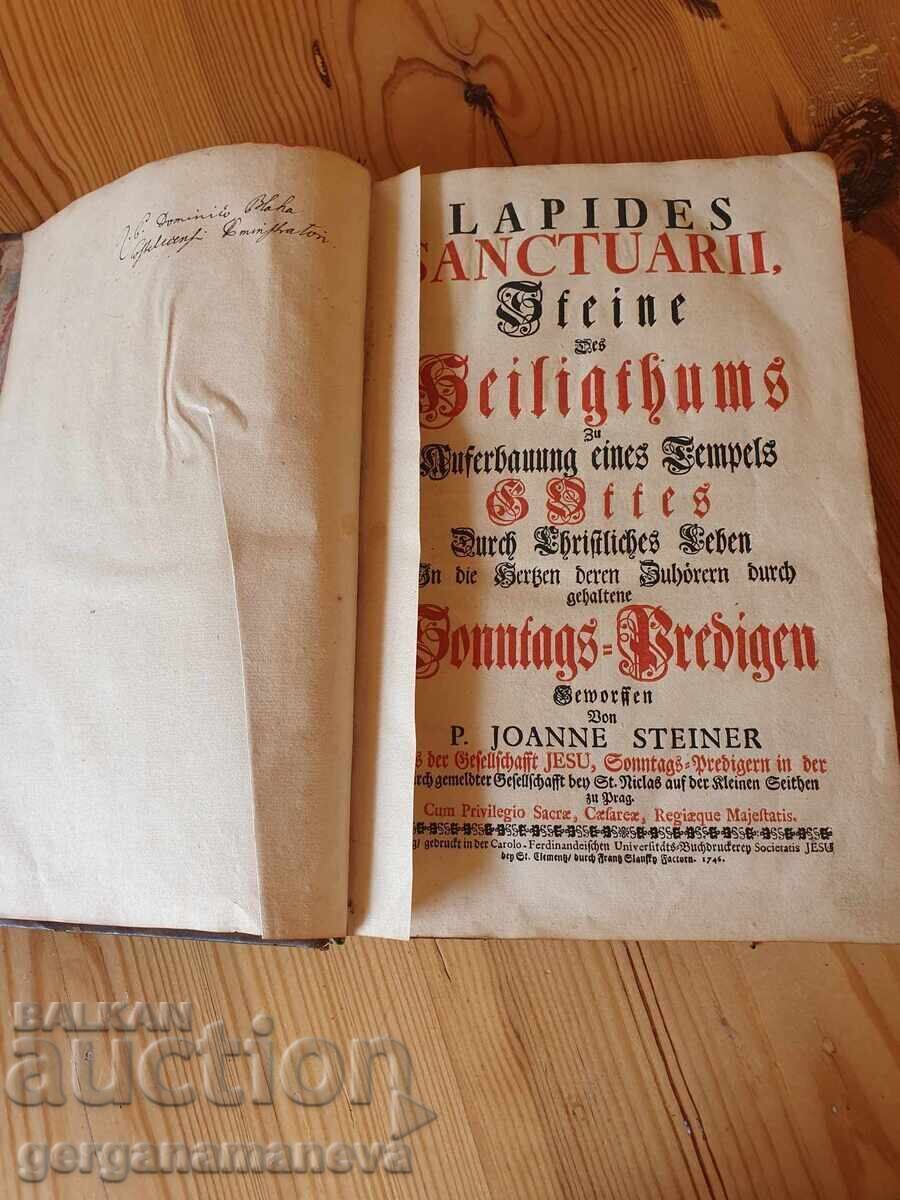 Dominico Blaha
LAPIDES
SANCTUARII,
Steine
Des
Heiligthums
Zu
Auferbauung eines Tempels
GOttes
Durch Christliches Leben
In die Hertzen deren Zuhörern durch
gehaltene
Sonntags-Predigen
Geworffen
Von
P. JOANNE STEINER
der Gesellschafft JESU, Sonntags-Predigern in der
gemeldter Gesellschafft bey St. Niclas auf der Kleinen Seithen
zu Prag.
Cum Privilegio Sacræ, Cæsareæ, Regiæque Majestatis.
gedruckt in der Carolo-Ferdinandeischen Universitäts-Buchdruckerey Societatis JESU
bey St. Clement/ durch Frantz Slansky Factorn. 1746.
BALKAN
auction
gerganamaneva